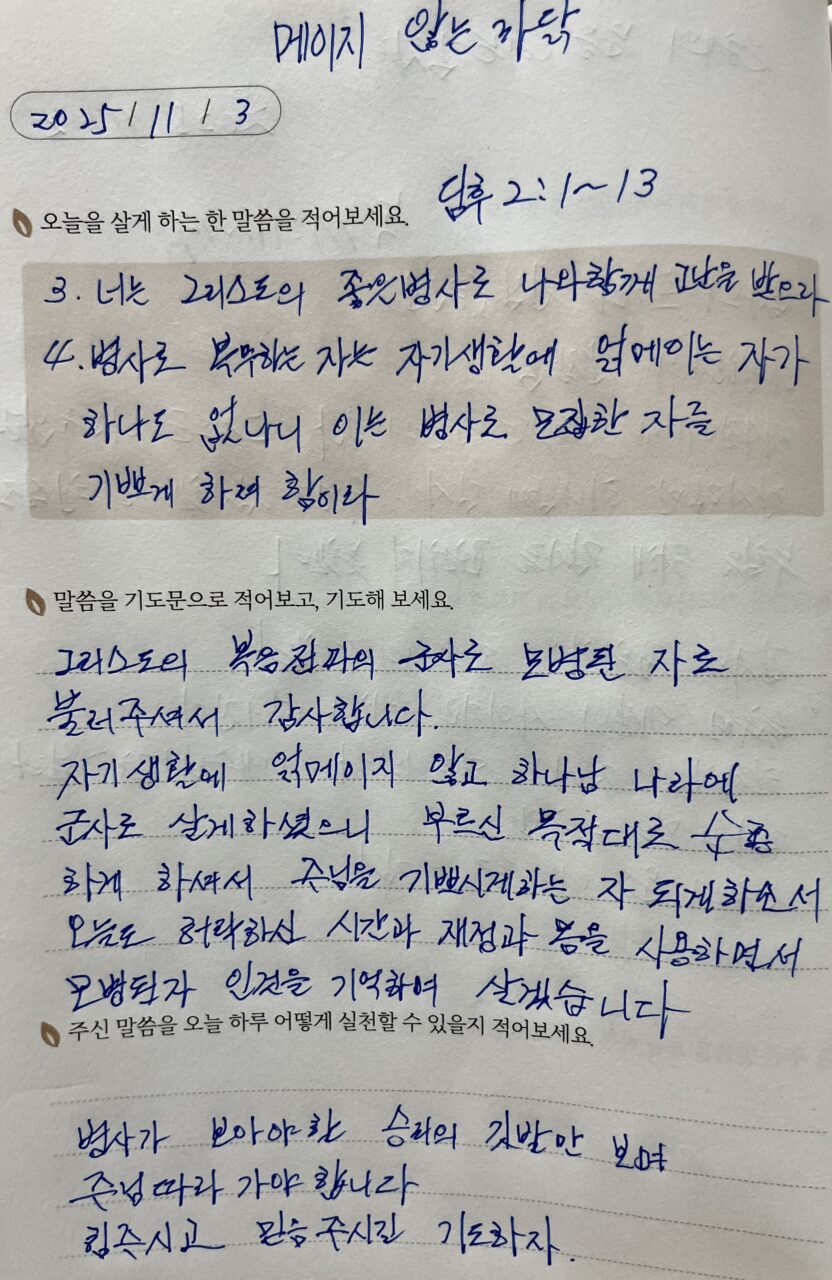 메이지 않는 까닭
2025 / 11 / 3
딤후 2:1~13
오늘을 살게 하는 한 말씀을 적어보세요.
3. 너는 그리스도의 좋은병사로 나와함께 고난을 받으라
4. 병사로 복무하는 자는 자기생활에 얽메이는 자가
하나도 없나니 이는 병사로 모집한 자를
기쁘게 하려 함이라
말씀을 기도문으로 적어보고, 기도해 보세요.
그리스도의 복음전파의 군사로 모병된 자로
불러주셔서 감사합니다.
자기생활에 얽메이지 않고 하나님 나라에
군사로 살게하셨으니 부르신 목적대로 순종
하게 하셔서 주님을 기쁘시게하는 자 되게하소서
오늘도 허락하신 시간과 재정과 몸을 사용하면서
모병된자 인것을 기억하여 살겠습니다
주신 말씀을 오늘 하루 어떻게 실천할 수 있을지 적어보세요.
병사가 보아야할 승리의 깃발만 보며
주님따라 가야 합니다
힘주시고 믿음주시길 기도하자.